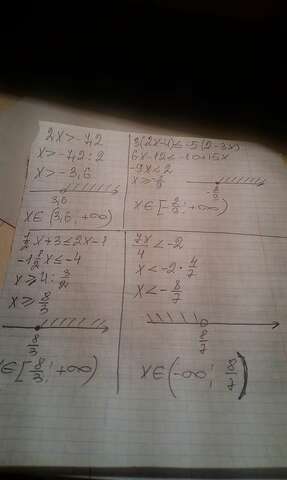 2x>-7,2
x>-7,2:2
x>-3,6
3,6
x∈(3,6; +∞)
3(2x-4)≤-5(2-3x)
6x-12≤-10+15x
-9x≤2
x≥-2/9
-2/9
x∈[-2/9; +∞)
1/2x+3≤2x-1
-1 1/2x≤-4
x≥4:3/2
x≥8/3
8/3
∈[8/3; +∞)
7x/4<-2
x<-2·4/7
x<-8/7
8/7
x∈(-∞; 8/7)